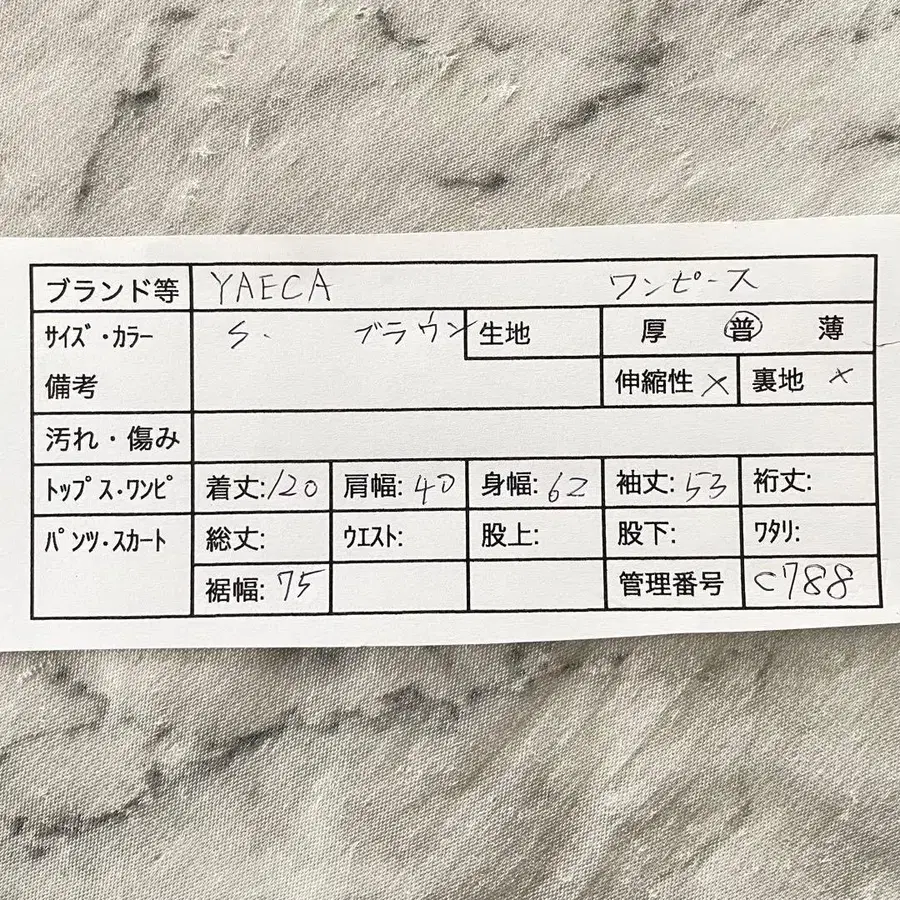 ブランド等 YAECA ワンピース
サイズ・カラー S. ブラウン 生地 厚 普 薄
備考 伸縮性 × 裏地 ×
汚れ・傷み
トップス・ワンピ 着丈:120 肩幅:40 身幅:62 袖丈:53 裄丈:
パンツ・スカート 総丈: ウエスト: 股上: 股下: ワタリ:
裾幅:75 管理番号 C788